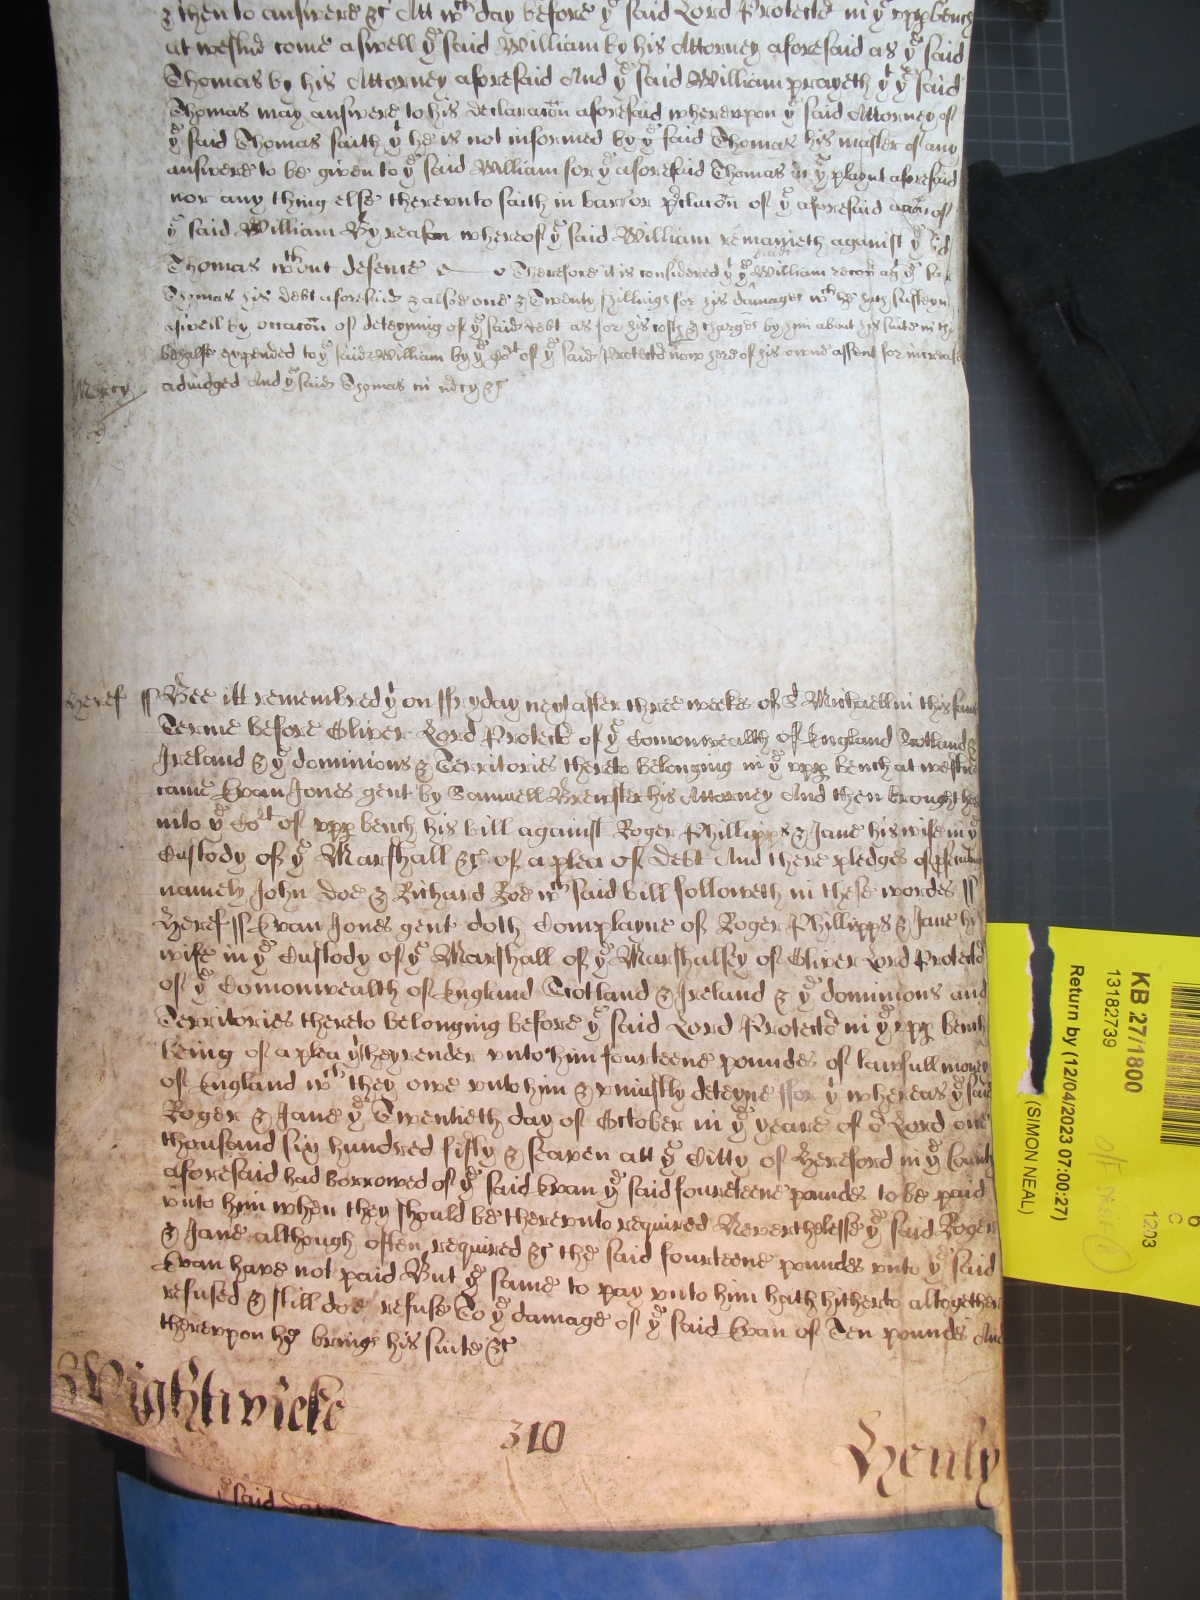 & then to answere &c Att wch day before ye said Lord Protectr in ye vpp bench
at westmr come aswell ye said William by his Attorney aforesaid as ye said
Thomas by his Attorney aforesaid And ye said William prayeth yt ye said
Thomas may answere to his declaracon aforesaid wherevpon ye said Attorney of
ye said Thomas saith yt he is not informed by ye said Thomas his master of any
answere to be given to ye said William for ye aforesaid Thomas in ye playnt aforesaid
nor any thing else therevnto saith in barr or pclusion of ye aforesaid accon of
ye said William By reason whereof ye said William remayneth against ye sd
Thomas wthout defence Therefore it is considered yt ye said William recovr agt ye said
Thomas his debt aforesaid & alsoe one & Twenty shillings for his damages wch he hath susteyned
aswell by occacon of deteyning of ye said debt as for his costs & charges by him about his suite in this
behalfe expended to ye said William by ye Cort of ye said Protectr now here of his owne assent for increase
adiudged And ye said Thomas in mcy &c
Mercy
Heref ss Bee itt remembred yt on ffryday next after three weekes of St Michaell in this same
Terme before Oliver Lord Protectr of ye Comonwealth of England Scotland &
Ireland & ye dominions & Territories thereto belonging in ye vpp bench at westmr
came Evan Jones gent by Samuell Brewster his Attorney And then brought here
into ye Cort of vpp bench his bill against Roger Phillipps & Jane his wife in ye
Custody of ye Marshall &c of a plea of debt And there pledges of psecuting
namely John Doe & Richard Roe wch said bill followeth in these wordes ss
Heref ss Evan Jones gent doth Complayne of Roger Phillipps & Jane his
wife in ye Custody of ye Marshall of ye Marshalsey of Oliver Lord Protectr
of ye Comonwealth of England Scotland & Ireland & ye dominions and
Territories thereto belonging before ye said Lord Protectr in ye vpp bench
being of a plea yt they render vnto him fourteene poundes of lawfull money
of England wch they owe vnto him & vniustly deteyne ffor yt whereas ye said
Roger & Jane ye Twentieth day of October in ye yeare of or Lord one
thousand six hundred fifty & seaven att ye Citty of Hereford in ye County
aforesaid had borrowed of ye said Evan ye said fourteene poundes to be paid
vnto him when they should be therevnto required Neverthelesse ye said Roger
& Jane although often required &c the said fourteene poundes vnto ye said
Evan have not paid But ye same to pay vnto him hath hitherto altogether
refused & still doe refuse To ye damage of ye said Evan of Ten poundes And
therevpon he brings his suite &c
Wightwicke
310
Henly
ye said
KB 27/1800
13182739
Return by (12/04/2023 07:00:27)
(SIMON NEAL)
1203
C
6